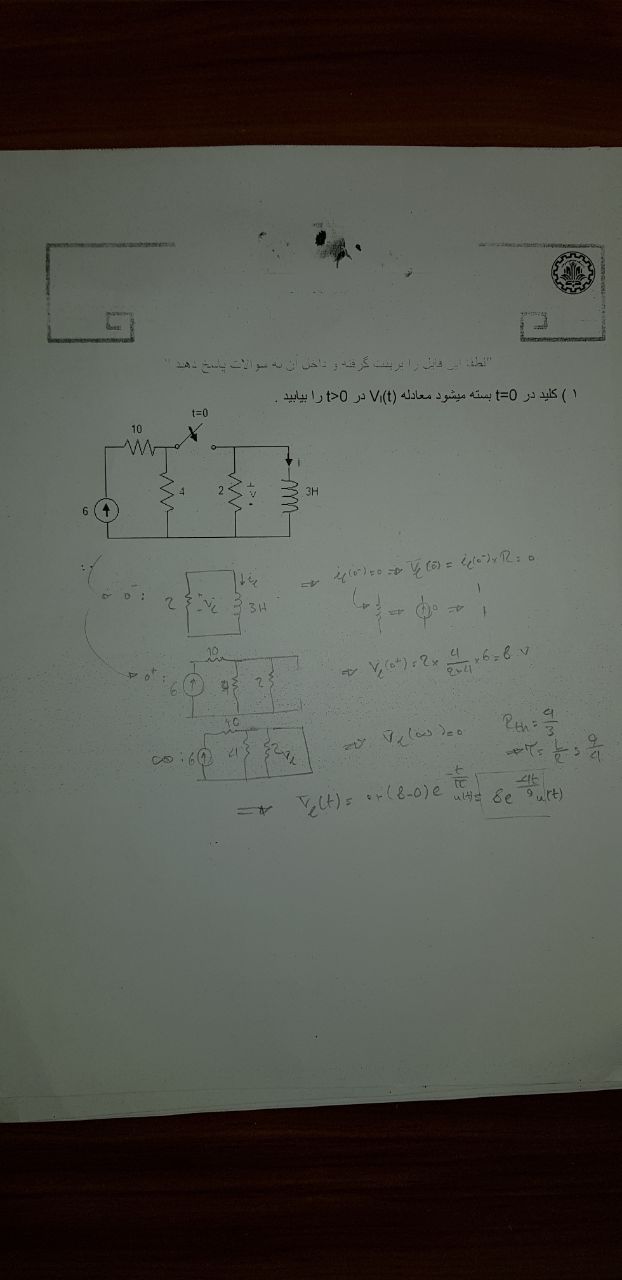 "لطفا این فایل را پرینت گرفته و داخل آن به سوالات پاسخ دهید"
۱ ) کلید در t=0 بسته میشود معادله Vₗ(t) در t>0 را بیابید .
t=0
10
4
2
+
V
-
i
3H
6
0⁻:
2
+
V_L
-
i_L
3H
⇒ i_L(0⁻)=0 ⇒ V_L(0⁻) = i_L(0⁻)×R = 0
0⁺:
6
10
4
2
⇒ V_L(0⁺) = 2× 4/(2+4) ×6 = 8 V
∞:
6
10
4
2
V_L
⇒ V_L(∞)=0
R_th = 4/3
⇒ τ = L/R = 9/4
⇒ V_L(t) = 0+(8-0)e^(-t/τ) u(t) = 8e^(-4t/9) u(t)